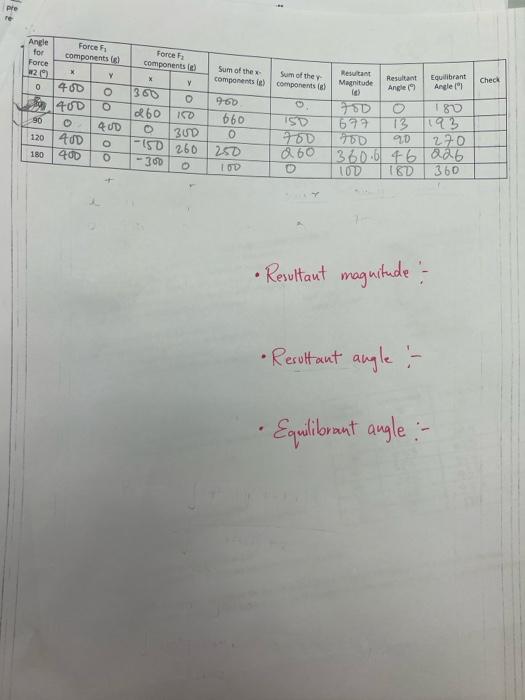 pre
re
Angle for Force #2 (°) | Force F₁ components (g) | Force F₂ components (g) | Sum of the x- components (g) | Sum of the y- components (g) | Resultant Magnitude (g) | Resultant Angle (°) | Equilibrant Angle (°) | Check
x | y | x | y
0 | 400 | 0 | 300 | 0 | 700 | 0. | 700 | 0 | 180
400 | 0 | 260 | 150 | 660 | 150 | 677 | 13 | 193
90 | 0 | 400 | 0 | 300 | 0 | 700 | 700 | 90 | 270
120 | 400 | 0 | -150 | 260 | 250 | 260 | 360.6 | 46 | 226
180 | 400 | 0 | -300 | 0 | 100 | 0 | 100 | 180 | 360
• Resultant magnitude :-
• Resultant angle :-
• Equilibrant angle :-